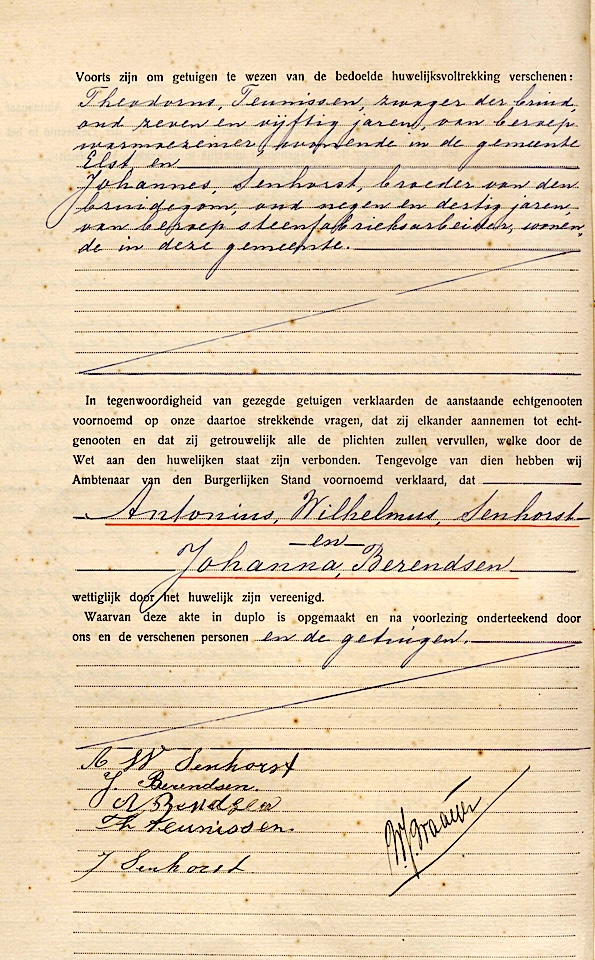 Voorts zijn om getuigen te wezen van de bedoelde huwelijksvoltrekking verschenen:
Theodorus, Teunissen, zwager der bruid,
oud zeven en vijftig jaren, van beroep
warmoezenier, wonende in de gemeente
Elst en
Johannes, Senhorst, broeder van den
bruidegom, oud negen en dertig jaren,
van beroep steenfabrieksarbeider, wonen,
de in deze gemeente.
In tegenwoordigheid van gezegde getuigen verklaarden de aanstaande echtgenooten
voornoemd op onze daartoe strekkende vragen, dat zij elkander aannemen tot echt-
genooten en dat zij getrouwelijk alle de plichten zullen vervullen, welke door de
Wet aan den huwelijken staat zijn verbonden. Tengevolge van dien hebben wij
Ambtenaar van den Burgerlijken Stand voornoemd verklaard, dat
Antonius, Wilhelmus, Senhorst
en
Johanna, Berendsen
wettiglijk door het huwelijk zijn vereenigd.
Waarvan deze akte in duplo is opgemaakt en na voorlezing onderteekend door
ons en de verschenen personen en de getuigen.
A W Senhorst
J. Berendsen.
Th Teunissen.
J Senhorst